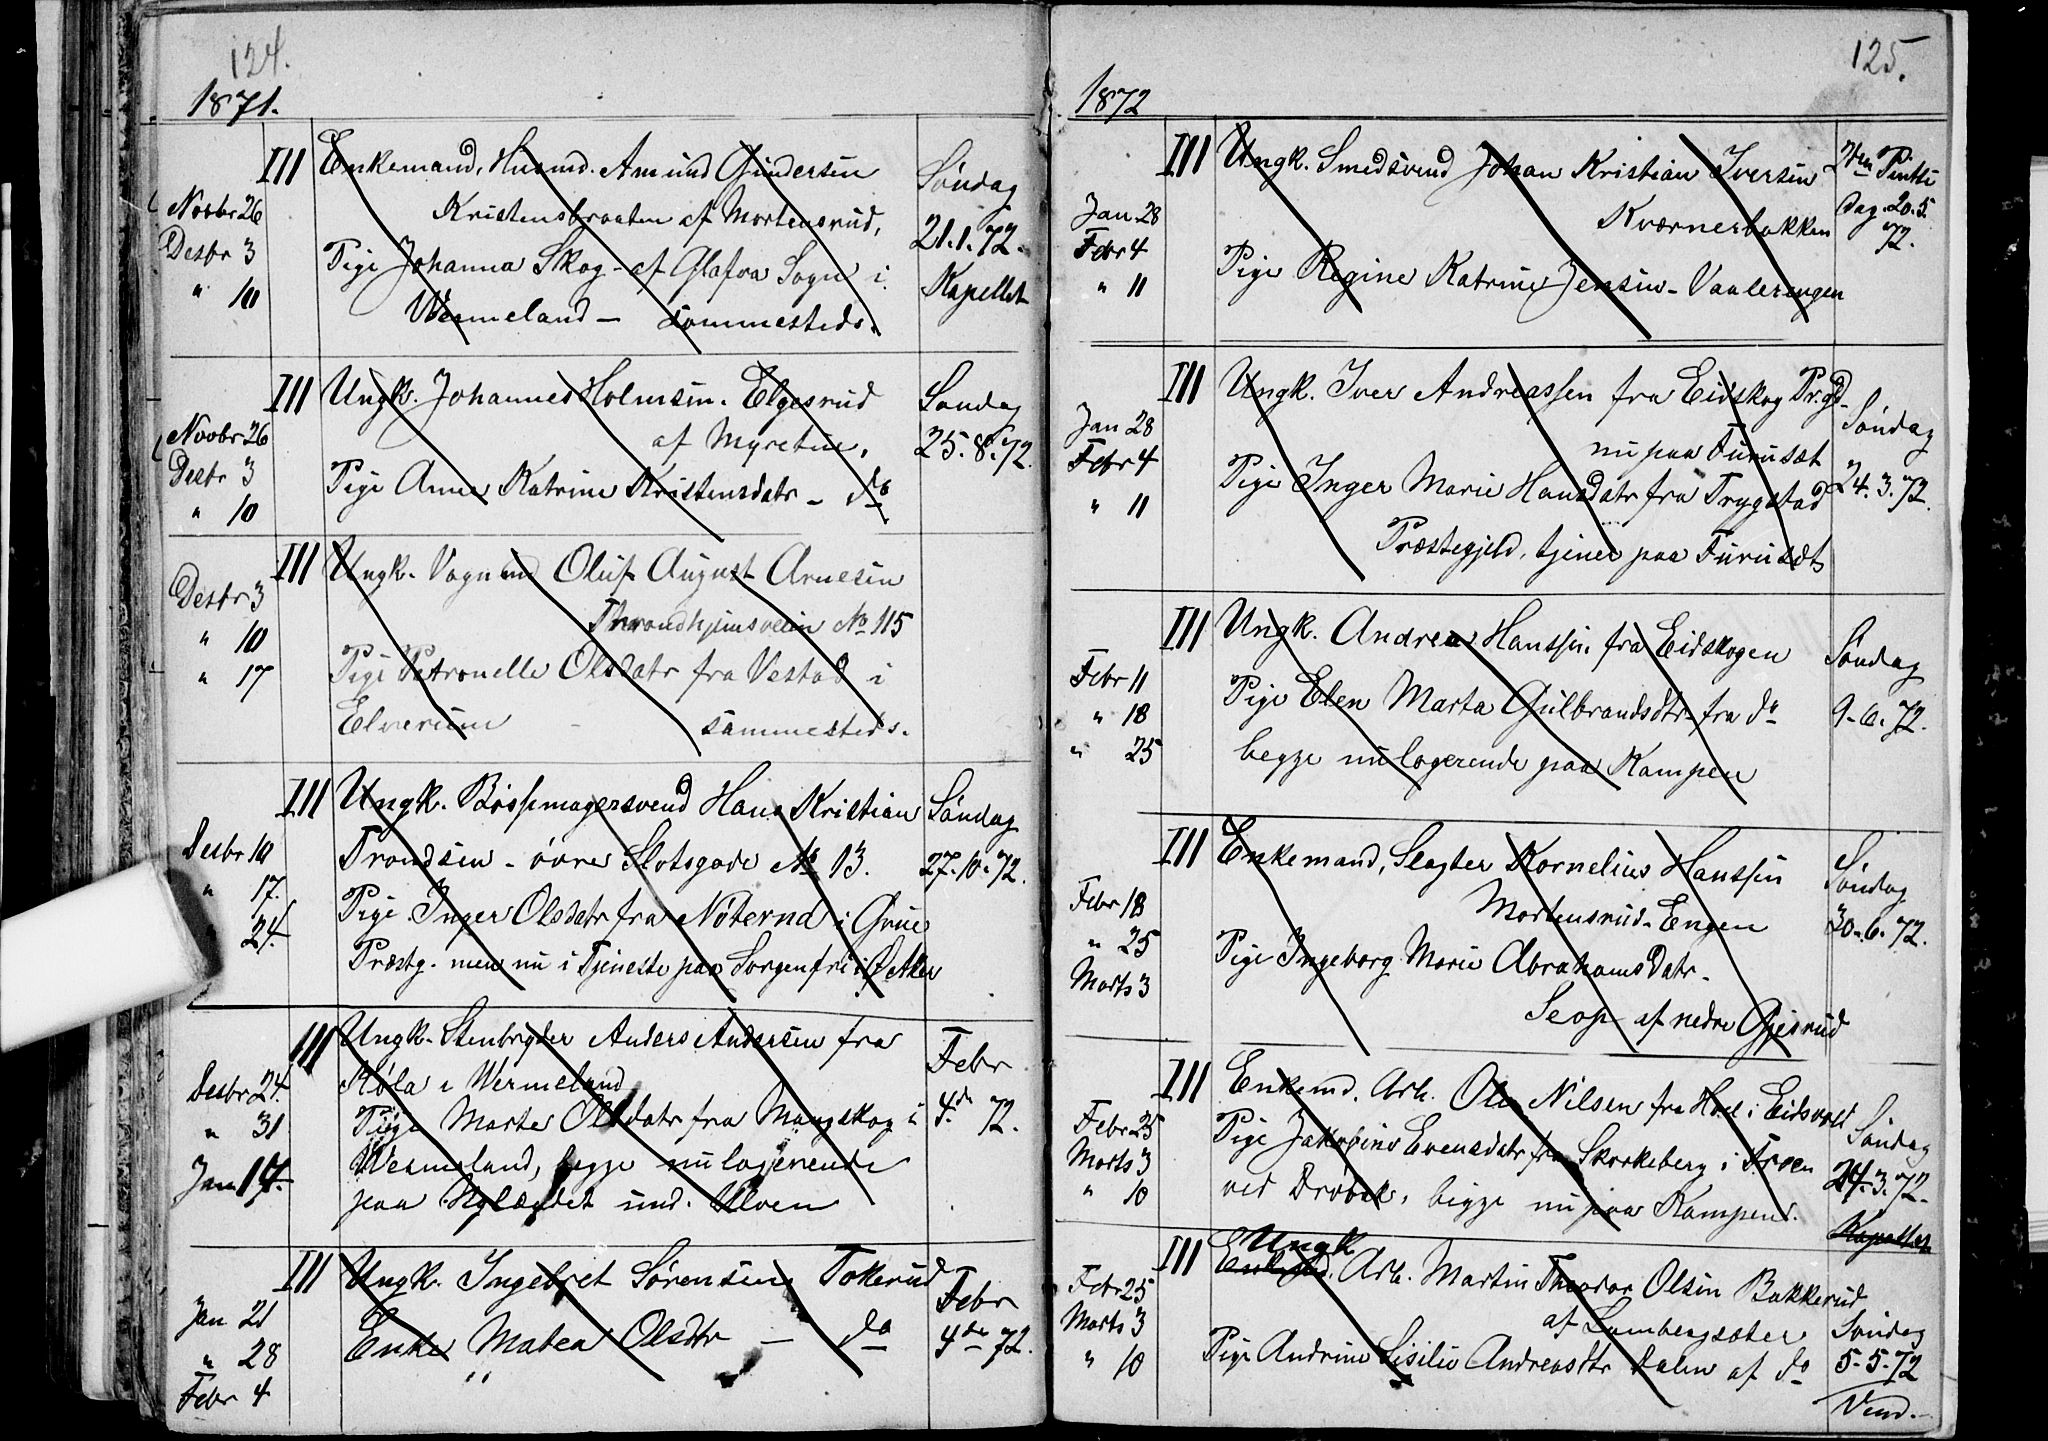 124.
1871.
Novbr 26
Desbr 3
" 10
III Enkemand, Husmd. Amund Gundersen
Kristensbraaten af Mortensrud,
Pige Johanna Skog - af Glafva Sogn i
Wermeland — sammesteds.
Søndag
21.1.72.
Kapellet
Novbr 26
Desbr 3
" 10
III Ungk. Johannes Holmsen. Elgesrud
af Myretue.
Pige Anne Katrine Kristensdatr - do
Søndag
25.8.72.
Desbr 3
" 10
" 17
III Ungk. Vognmd Oluf August Arnesen
Throndhjemsveien No 115
Pige Petronelle Olsdatr fra Vestad i
Elverum - sammesteds.
Desbr 10
" 17.
24.
III Ungk. Bøssemagersvend Hans Kristian
Trondsen - øvre Slotsgade No 13.
Pige Inger Olsdatr fra Nøternd i Grue
Præstg. men nu i Tjeneste paa Sorgenfri i Ø Aker
Søndag
27.10.72.
Desbr 24.
" 31
Jan 14.
III Ungk. Stenbryder Anders Andersen fra
Køla i Wermeland
Pige Marte Olsdatr fra Mangskog i
Wermeland, begge nu logerende
paa Nylændet und. Ulven
Febr
4de 72.
Jan 21
" 28
Febr 4
III Ungk. Ingebret Sørensen, Tokerud
Enke Matea Olsdtr — do
Febr
4de 72.
125.
1872
Jan 28
Febr 4
" 11
III Ungk. Smedsvend Johan Kristian Iversen
Kværnerbakken
Pige Regine Katrine Jensen - Vaalerengen
2den Pintse
dag 20.5.
72.
Jan 28
Febr 4
" 11
III Ungk. Iver Andreassen fra Eidskog Pr.gd
nu paa Furuset
Pige Inger Marie Hansdatr fra Trygstad
Præstegjeld, tjener paa Furusæt
Søndag
24.3.72.
Febr 11
" 18
" 25
III Ungk. Andreas Hanssen fra Eidskogen
Pige Elen Marta Gulbrandsdtr fra do
begge nu logerende paa Kampen
Søndag
9.6.72.
Febr 18
" 25
Marts 3
III Enkemand, Slagter Kornelius Hanssen
Mortensrud-Engen
Pige Ingeborg Marie Abrahamsdatr-
Seop af nedre Gjesrud
Søndag
30.6.72.
Febr 25
Marts 3
" 10
III Enkemd. Arb. Ole Nilsen fra Hoel i Eidsvold
Pige Jakobine Evensdatr fra Skorkeberg i Froen
ved Drøbak, begge nu paa Kampen.
Søndag
24.3.72.
Kapellet
Febr 25
Marts 3
" 10
Ungk
III Enkemd. Arb. Martin Theodor Olsen Bakkerud
af Lambergsæter
Pige Andrine Sisilie Andreasdtr Dalen af do
Søndag
5.5.72
Vend.